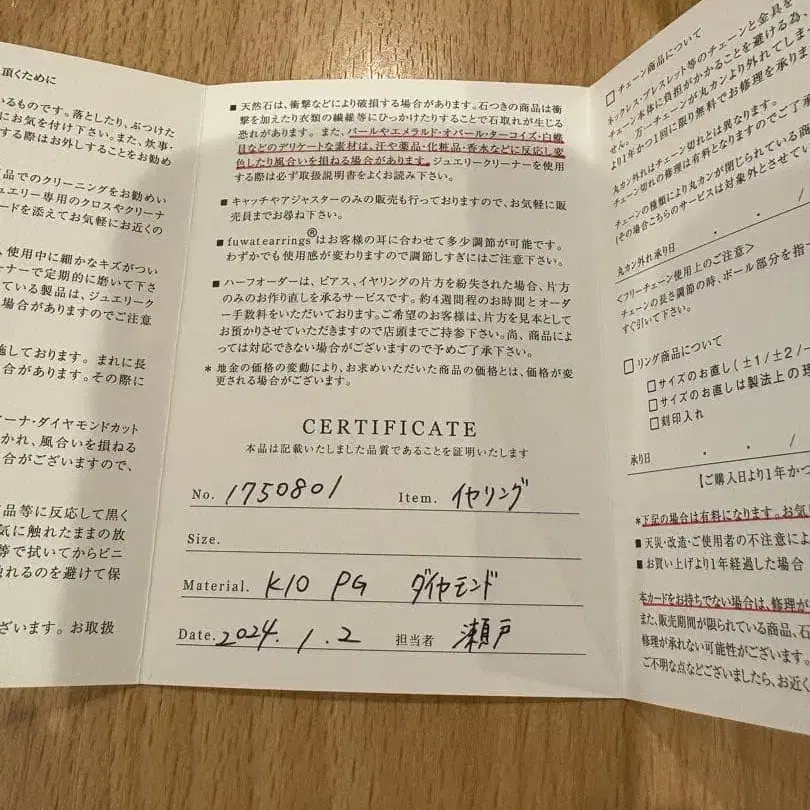 頂くために
いるものです。落としたり、ぶつけた
にお気を付け下さい。また、炊事・
する際はお外しすることをお勧め
品でのクリーニングをお勧めい
ュエリー専用のクロスやクリーナ
ードを添えてお気軽にお近くの
、使用中に細かなキズがつい
ーナーで定期的に磨いて下さ
ている製品は、ジュエリーク
場合がありますのでご注意
施しております。まれに長
合があります。その際に
ィーナ・ダイヤモンドカット
かれ、風合いを損ねる
合がございますので、
品等に反応して黒く
気に触れたままの放
等で拭いてからビニ
れるのを避けて保
ざいます。お取扱
■ 天然石は、衝撃などにより破損する場合があります。石つきの商品は衝
撃を加えたり衣類の繊維等にひっかけたりすることで石取れが生じる
恐れがあります。また、パールやエメラルド・オパール・ターコイズ・白蝶
貝などのデリケートな素材は、汗や薬品・化粧品・香水などに反応し変
色したり風合いを損ねる場合があります。ジュエリークリーナーを使用
する際は必ず取扱説明書をよくお読み下さい。
■ キャッチやアジャスターのみの販売も行っておりますので、お気軽に販
売員までお尋ね下さい。
■ fuwatearrings®はお客様の耳に合わせて多少調節が可能です。
わずかでも使用感が変わりますので調節しすぎにはご注意下さい。
■ ハーフオーダーは、ピアス、イヤリングの片方を紛失された場合、片方
のみのお作り直しを承るサービスです。約4週間程のお時間とオーダ
ー手数料をいただいております。ご希望のお客様は、片方を見本として
お預かりさせていただきますので店頭までご持参下さい。尚、商品によ
っては対応できない場合がございますので予めご了承下さい。
* 地金の価格の変動により、お求めいただいた商品の価格とは、価格が変
更される場合がございます。
CERTIFICATE
本品は記載いたしました品質であることを証明いたします
No. 1750801 Item. イヤリング
Size.
Material. K10 PG ダイヤモンド
Date. 2024. 1. 2 担当者 瀬戸
□ チェーン商品について
ネックレス・ブレスレット等のチェーンと金具を
チェーン本体に負担がかかることを避ける為、
せん。万一チェーンが丸カンより外れてしま
より1年かつ1回に限り無料でお修理を承りま
丸カン外れはチェーン切れとは異なります。
チェーン切れの修理は有料となりますのでご了承
チェーンの種類により丸カンが閉じられている商品
(その場合こちらのサービスは対象外とさせてい
丸カン外れ承り日 ・ ・ /
<フリーチェーン使用上のご注意>
チェーンの長さ調節の時、ボール部分を指で
すぐ引いて下さい。
□ リング商品について
□サイズのお直し(±1/±2/
□サイズのお直しは製法上の理
□刻印入れ
承り日 ・ ・ /
【ご購入日より1年かつ
*下記の場合は有料になります。お気
■ 天災・改造・ご使用者の不注意によ
■ お買い上げより1年経過した場合
本カードをお持ちでない場合は、修理が
また、販売期間が限られている商品、石
修理が承れない可能性がございます。
ご不明な点などございましたら、お近く